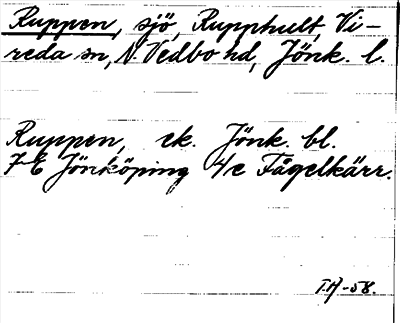 Ruppen, sjö, Rupphult, Vi-
reda sn, N. Vedbo hd, Jönk. l.
Ruppen, ek. Jönk. bl.
7E Jönköping 4c Fågelkärr.
T.H-58.